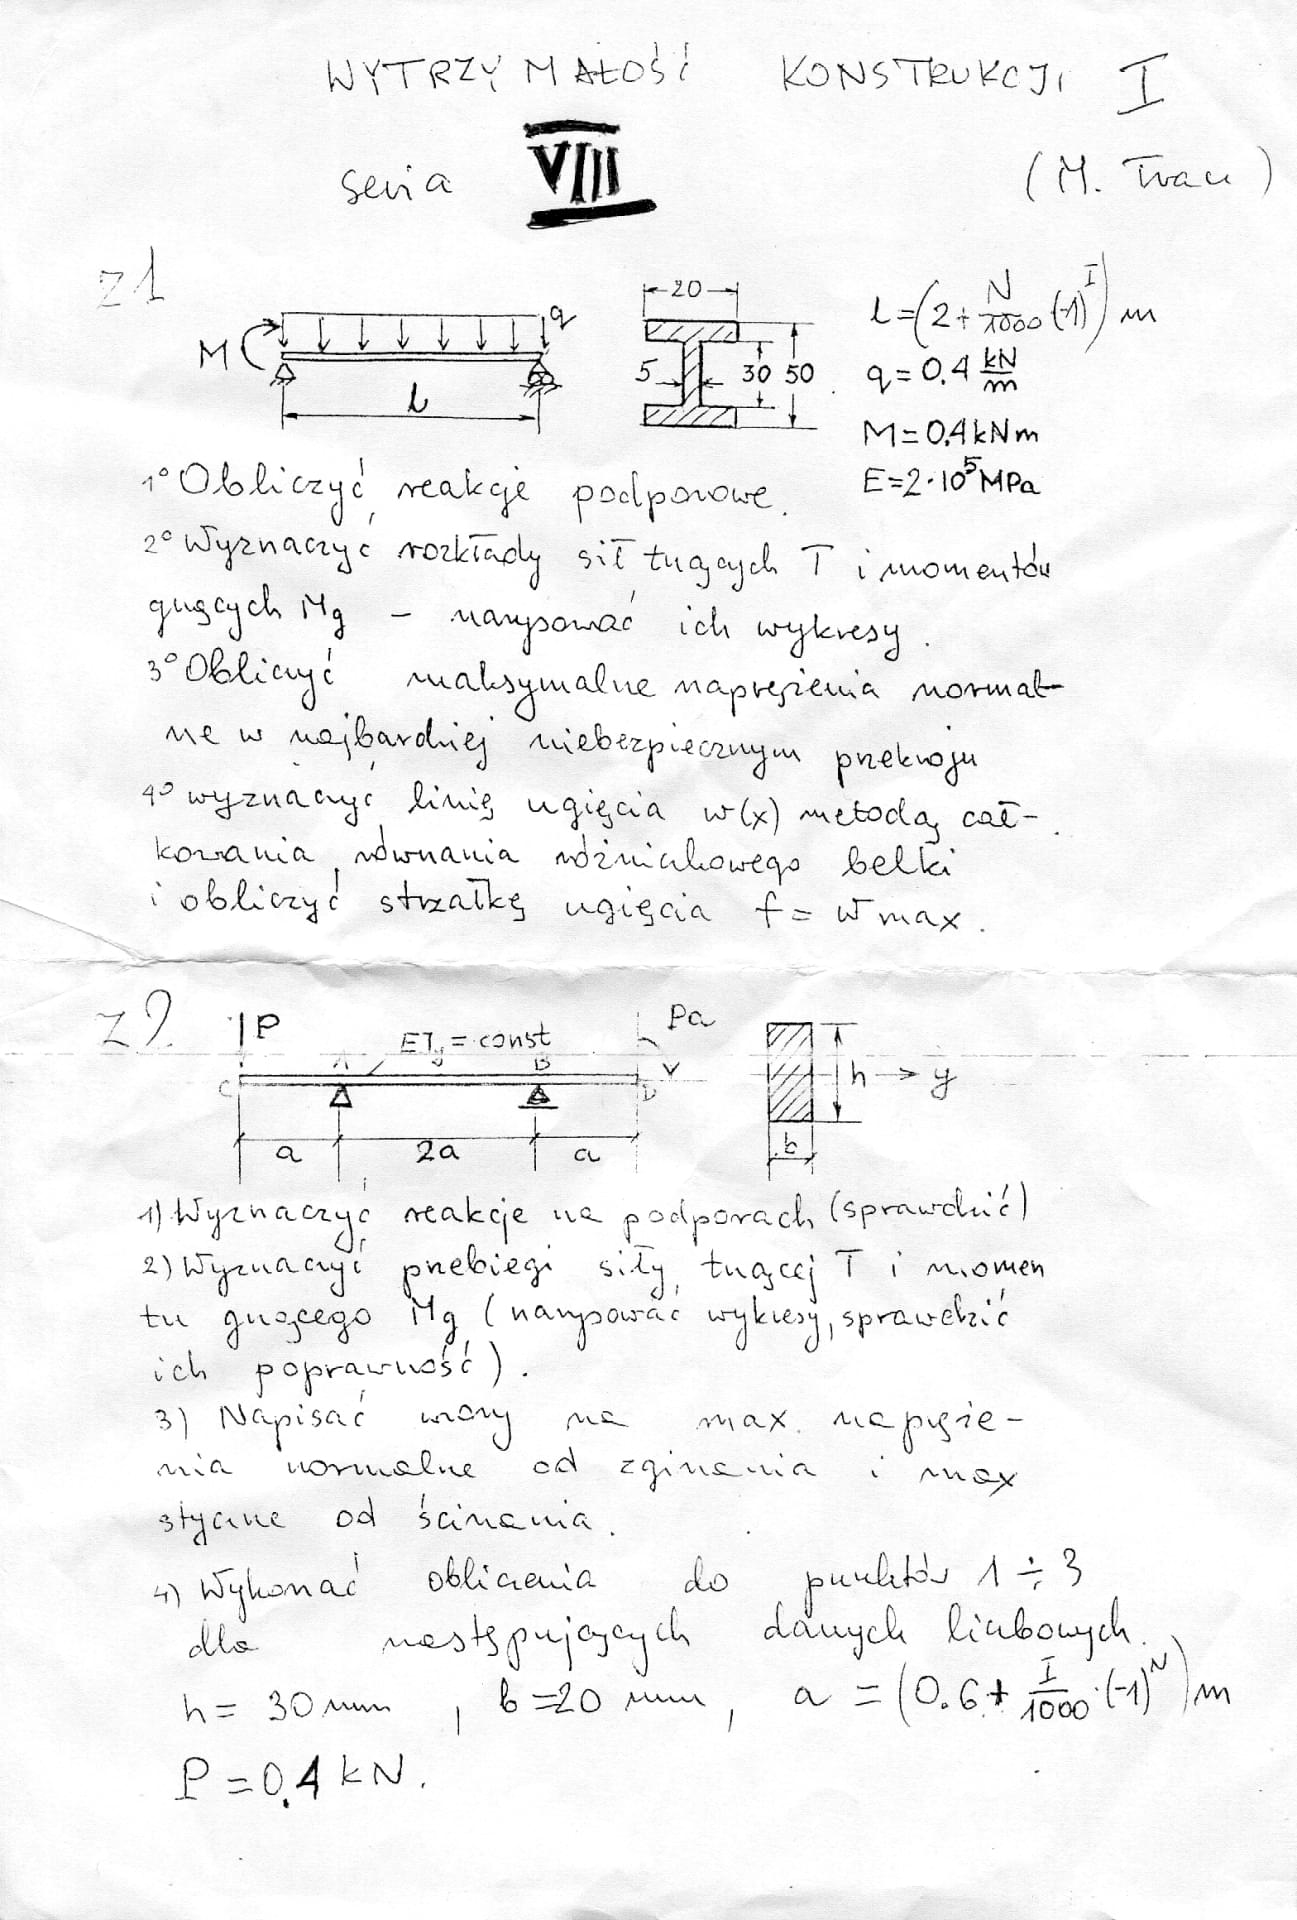 WYTRZYMAŁOŚĆ KONSTRUKCJI I
seria VIII
z1
20
l=(2+N/1000(-1)^I) m
M q
5 30 50
q=0.4 kN/m
l
M=0.4kNm
E=2·10^5MPa
1° Obliczyć reakcje podporowe.
2° Wyznaczyć rozkłady sił tnących T i momentów
gnących Mg – narysować ich wykresy.
3° Obliczyć maksymalne naprężenia normal-
ne w najbardziej niebezpiecznym przekroju
4° wyznaczyć linię ugięcia w(x) metodą cał-
kowania równania różniczkowego belki
i obliczyć strzałkę ugięcia f = w max.
z2
P EJy = const Pa
A B
C D h y
a 2a a b
1) Wyznaczyć reakcje na podporach (sprawdzić)
2) Wyznaczyć przebiegi siły tnącej T i momen
tu gnącego Mg (narysować wykresy, sprawdzić
ich poprawność).
3) Napisać wzory na max. napręże-
nia normalne od zginania i max
styczne od ścinania.
4) Wykonać obliczenia do punktów 1÷3
dla następujących danych liczbowych.
h = 30 mm, b = 20 mm, a = (0.6 + I/1000·(-1)^N) m
P = 0.4 kN.